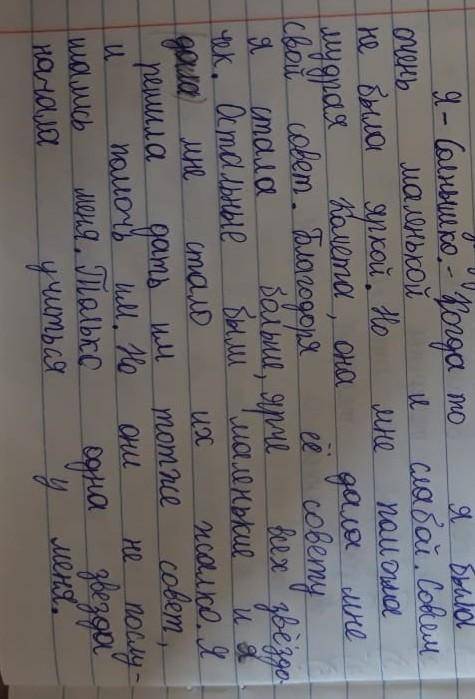 Я - Солнышко. - Когда то я была
очень маленькой и слабой. Совсем
не была яркой. Но мне помогла
мудрая Комета, она дала мне
свой совет. Благодоря её совету
я стала больше, ярче всех звёздо
чек. Остальные были маленькие и
мне стало их жалко. Я
решила дать им тотже совет,
и помочь им. Но они не послу-
шались меня. Только одна звезда
начала учиться у меня.